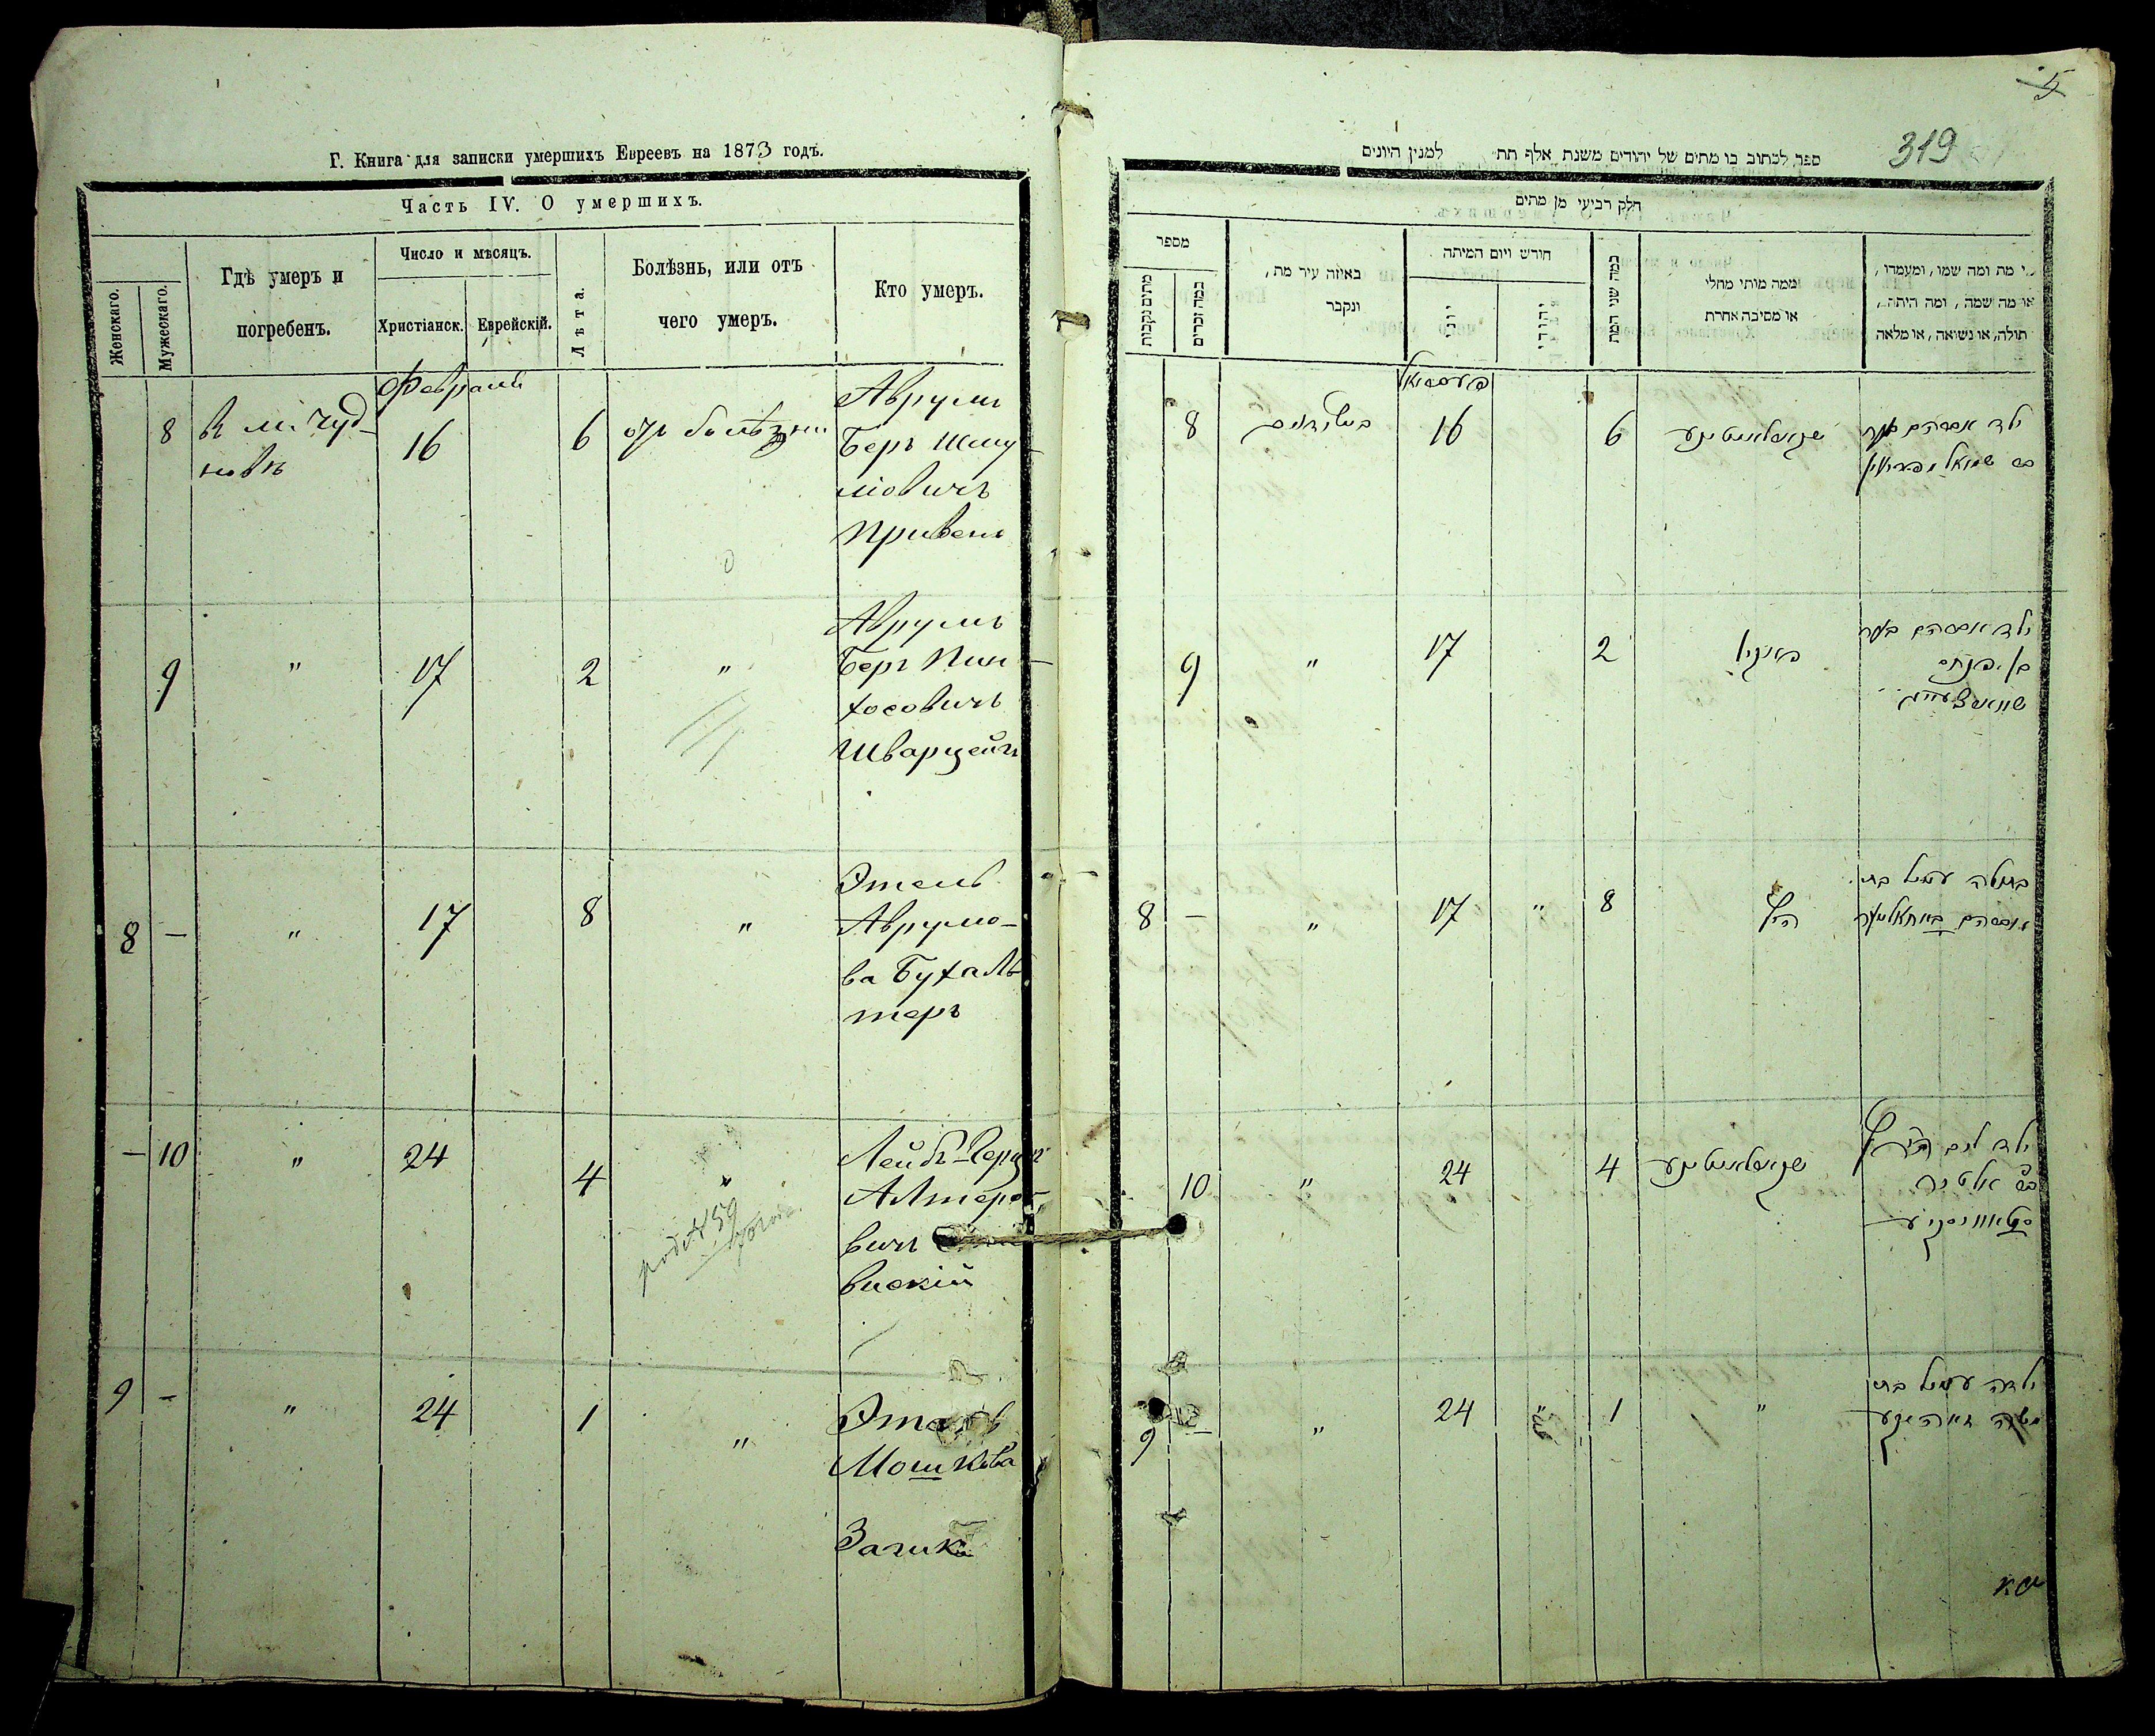 Г. Книга для записки умершихъ Евреевъ на 1873 годъ.
Часть IV. О умершихъ.
Женскаго.
Мужескаго.
Гдѣ умеръ и
погребенъ.
Число и мѣсяцъ.
Христіанск.
Еврейскій.
Лѣта.
Болѣзнь, или отъ
чего умеръ.
Кто умеръ.
8
в м. Чуд-
новѣ
Февраля
16
6
отъ болѣзни
Аврумъ
Беръ Шму
ліовичъ
Привенъ
9
"
17
2
"
Аврумъ
Беръ Пин-
хосовичъ
Шварцейгъ
8
-
"
17
8
"
Этель
Аврумо-
ва Бухаль
теръ
-
10
"
24
4
"
Лейбъ-Герцъ
Алтеро-
вичъ
вискій
9
-
"
24
1
"
Этель
Мошкова
5
319
ספר לכתוב בו מתים של יהודים משנת אלף תת למנין היונים
חלק רביעי מן מתים
מספר
מתים נקבות
כמה זכרים
באיזה עיר מת,
ונקבר
חורש ויום המיתה
יוני
יהודי
כמה שני המת
ממה מותי מחלי
או מסיבה אחרת
מי מת ומה שמו, ומעמדו,
או מה שמה, ומה היתה,
תולה, או נשואה, או מלאה
8
פעברואל
16
6
ילד אברהם בער
בר שמואל
9
"
17
2
ילד אברהם בער
בן פנחס
8
-
"
17
"
8
בתולה עטיל בת
אברהם בוחאלטער
10
"
24
4
בר אלטר
9
"
24
"
1
"
ילדה עטיל בת
משה